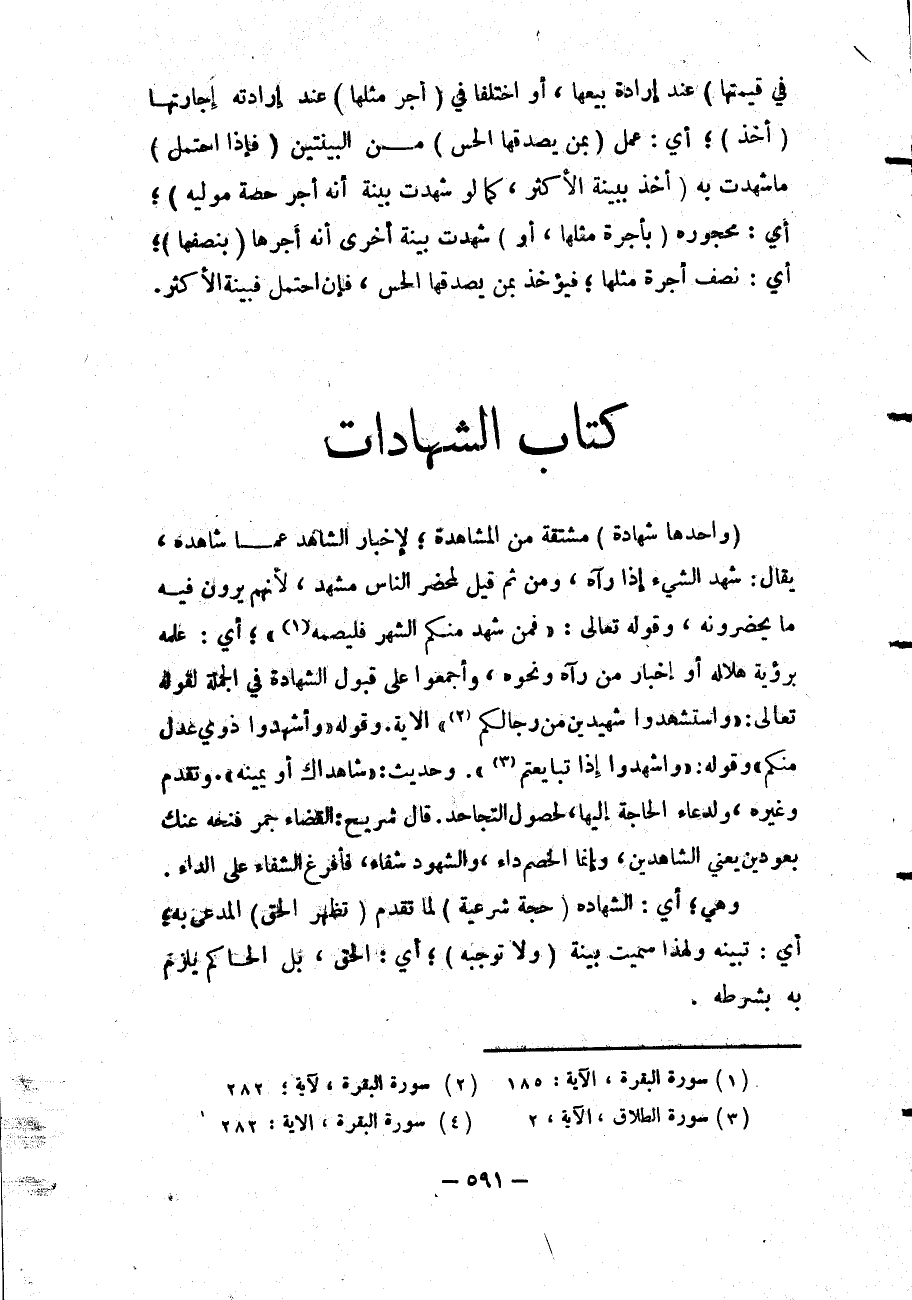 في قيمتها ) عند إرادة بيعها ، أو اختلفا في ( أجر مثلها ) عند إرادته إجارتها
( أخذ ) ؛ أي : عمل ( بمن يصدقها الحس ) من البينتين ( فإذا احتمل )
ماشهدت به ( أخذ ببينة الأكثر ، كما لو شهدت بينة أنه أجر حصة موليه ) ؛
أي : محجوره ( بأجرة مثلها ، أو ) شهدت بينة أخرى أنه أجرها ( بنصفها ) ؛
أي : نصف أجرة مثلها ؛ فيؤخذ بمن يصدقها الحس ، فإن احتمل فبينة الأكثر .
كتاب الشهادات
( واحدها شهادة ) مشتقة من المشاهدة ؛ لإخبار الشاهد عما شاهده ،
يقال : شهد الشيء إذا رآه ، ومن ثم قيل لمحضر الناس مشهد ، لأنهم يرون فيه
ما يحضرونه ، وقوله تعالى : « فمن شهد منكم الشهر فليصمه (١) » ؛ أي : علمه
برؤية هلاله أو إخبار من رآه ونحوه ، وأجمعوا على قبول الشهادة في الجملة لقوله
تعالى : « واستشهدوا شهيدين من رجالكم (٢) » الاية . وقوله « وأشهدوا ذوي عدل
منكم » وقوله : « واشهدوا إذا تبايعتم (٣) » . وحديث : « شاهداك أو يمينه » . وتقدم
وغيره ، ولدعاء الحاجة إليها ، لحصول التجاحد . قال شريح : القضاء جمر فنحه عنك
بعودين يعني الشاهدين ، وإنما الخصم داء ، والشهود شفاء ، فأفرغ الشفاء على الداء .
وهي ؛ أي : الشهاده ( حجة شرعية ) لما تقدم ( تظهر الحق ) المدعى به ؛
أي : تبينه ولهذا سميت بينة ( ولا توجبه ) ؛ أي : الحق ، بل الحاكم يلزم
به بشرطه .
(١) سورة البقرة ، الآية : ١٨٥ (٢) سورة البقرة ، لآية ؛ ٢٨٢
(٣) سورة الطلاق ، الآية ، ٢ (٤) سورة البقرة ، الاية : ٢٨٢
— ٥٩١ —